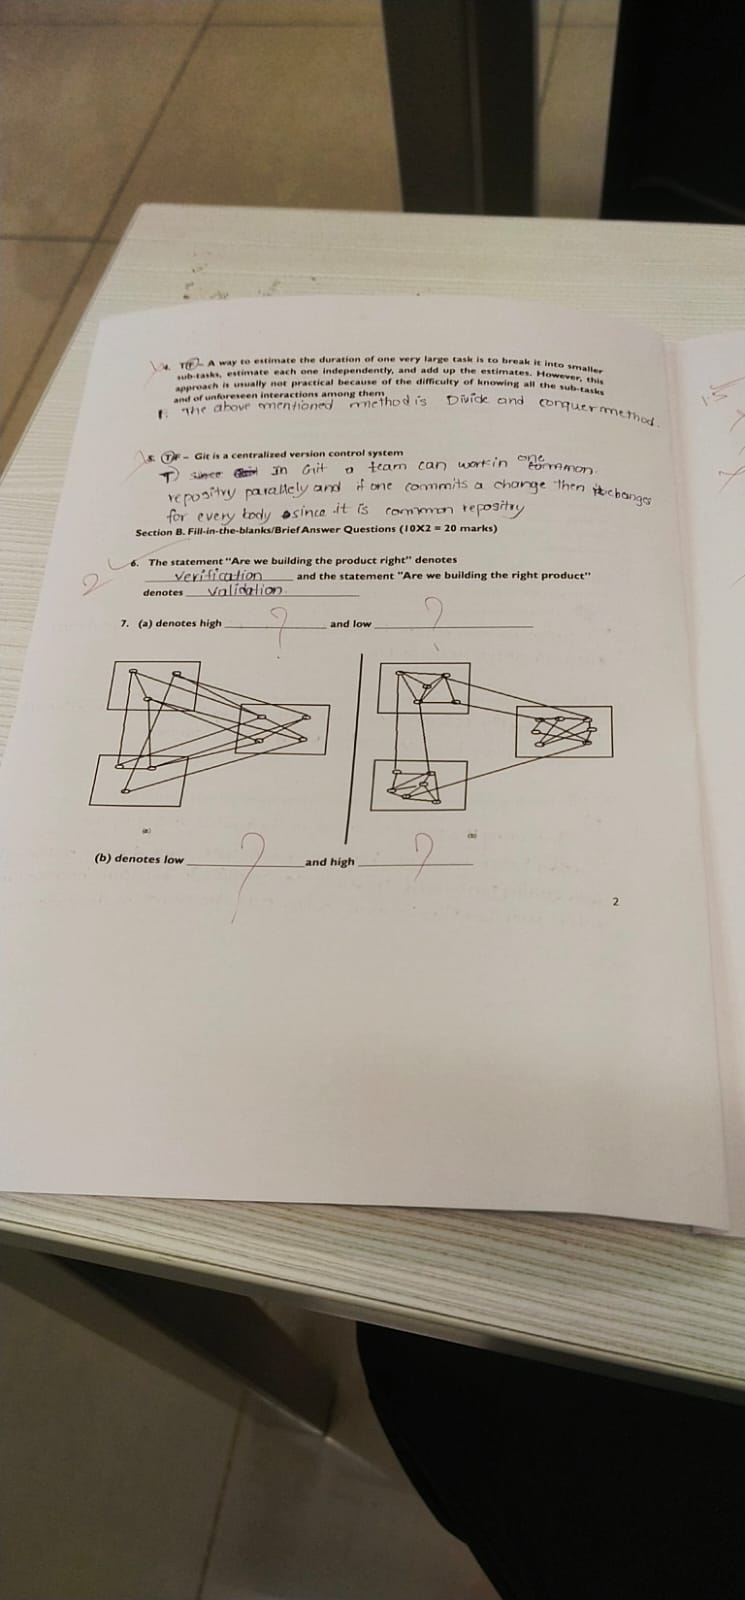 4. T/F - A way to estimate the duration of one very large task is to break it into smaller
sub-tasks, estimate each one independently, and add up the estimates. However, this
approach is usually not practical because of the difficulty of knowing all the sub-tasks
and of unforeseen interactions among them
F. The above mentioned method is Divide and conquer method.
5. T/F - Git is a centralized version control system
T) since In Git a team can work in one common.
repositry parallely and if one commits a change then changes
for every body since it is common repositry
Section B. Fill-in-the-blanks/Brief Answer Questions (10X2 = 20 marks)
2
6. The statement "Are we building the product right" denotes
verification and the statement "Are we building the right product"
denotes validation.
7. (a) denotes high ? and low ?
(a) (b)
(b) denotes low ? and high ?
2
1.5